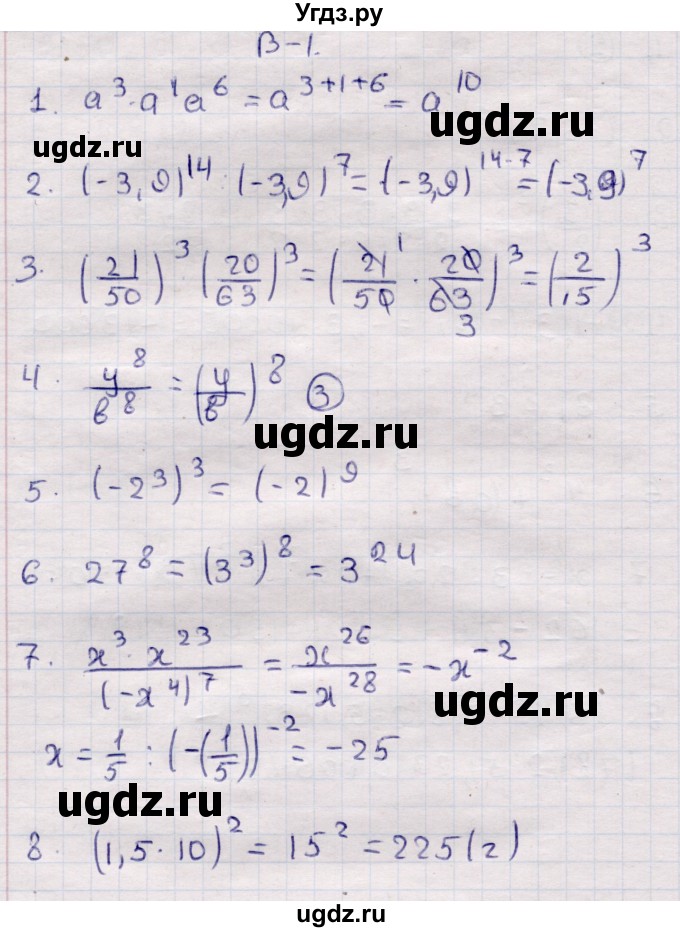 Угдз.ру
В-1.
1. a³·a¹a⁶ = a³⁺¹⁺⁶ = a¹⁰
ugdz.ru
ugdz.ru
2. (-3,9)¹⁴ : (-3,9)⁷ = (-3,9)¹⁴⁻⁷ = (-3,9)⁷
3. (21/50)³ (20/63)³ = (21¹/50 · 20/63 3)³ = (2/15)³
ugdz.ru
4. y⁸/b⁸ = (y/b)⁸ ③
ugdz.ru
5. (-2³)³ = (-2)⁹
ugdz.ru
6. 27⁸ = (3³)⁸ = 3²⁴
7. x³·x²³/(-x⁴)⁷ = x²⁶/-x²⁸ = -x⁻²
ugdz.ru
x = 1/5 : (-(1/5))⁻² = -25
ugdz.ru
8. (1,5·10)² = 15² = 225 (г)
ugdz.ru
ugdz.ru